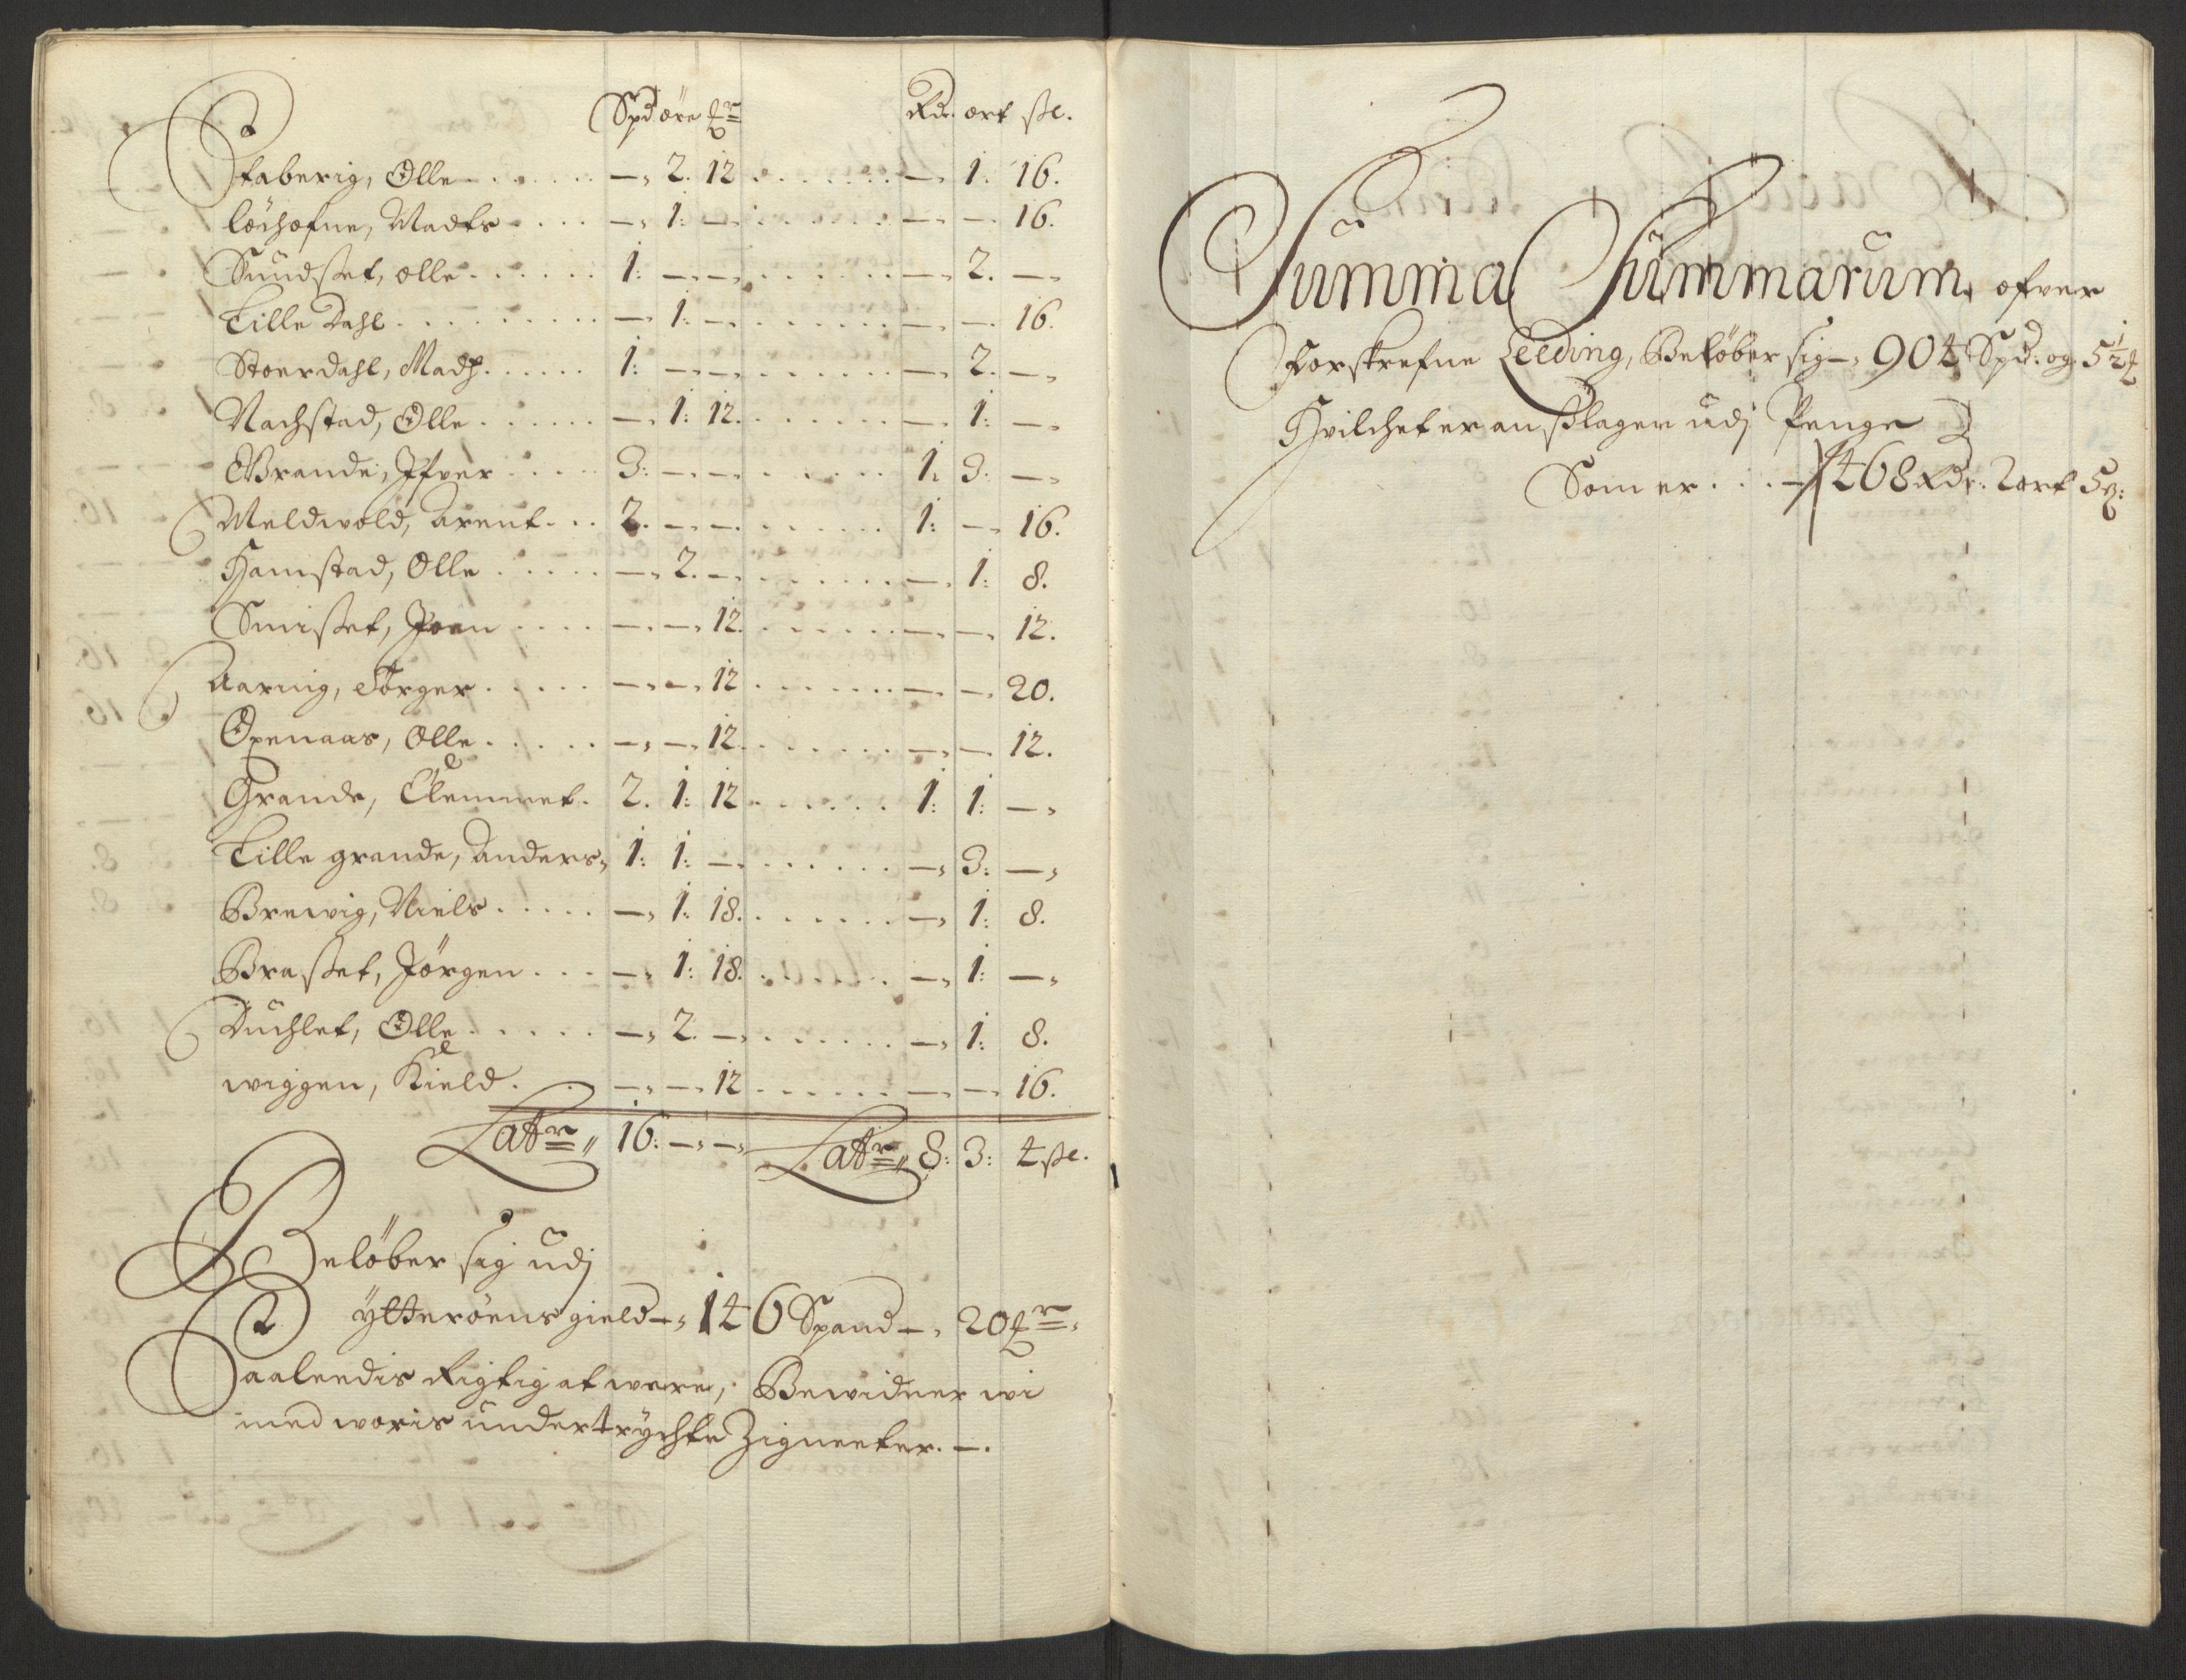 Spd øre
Rdr. ort ße.
Staberig, Olle . . . . . —, 2. 12 . . . . . . . —, 1: 16.
löchofne, Madts . . . . —, 1: —, . . . . . . —, —, 16.
Sundset, olle . . . . . . 1: —, —, . . . . . . —, 2. —,
Lille Dahl . . . . . . . . —, 1: —, . . . . . . —, —, 16.
Stoerdahl, Madz . . . . . 1: —, —, . . . . . . —, 2. —,
Nachstad, Olle . . . . . . —, 1: 12. . . . . . . —, 1: —,
Brande, Ifver . . . . 3: —, —, . . . . . . 1. 3: —,
Meldwold, Arent . . . 2. —, —, . . . . . . 1: —, 16.
Hamstad, Olle . . . . . —, 2. —, . . . . . . —, 1: 8.
Smisset, Joen . . . . —, —, 12. . . . . . . —, —, 12.
Aarnig, Törger . . . . . —, —, 12 . . . . . . . —, —, 20.
Oxenaas, Olle . . . . . —, —, 12. . . . . . . —, —, 12.
Grande, Clemmet . 2. 1: 12 . . . . . . 1: 1: —,
Lille grande, Anders, 1: 1: —, . . . . . . —, 3: —,
Brewig, Niels . . . . . —, 1: 18. . . . . . . —, 1: 8.
Brasset, Jörgen . . . —, 1: 18. . . . . . . —, 1: —,
Duchlet, Olle . . . . . —, 2. —, . . . . . . —, 1: 8.
wiggen, Kield . . —, —, 12 . . . . . . —, —, 16.
Latr 16: —, —, Latr 8: 3: 4 ße.
Beløber sig udj
Ytterøens gield —, 146 Spand —, 20
Saaleedis Rigtig at were, Bewidner wi
med woris undertrychte Zigneeter. —.
Summa Summarum, ofver
Forskrefne Leeding, Beløber sig —, 904 Spd: og 5½
Hvilchet er anslagen udj Penge
Som er . . . — 468 Rdr: 2 ort 5